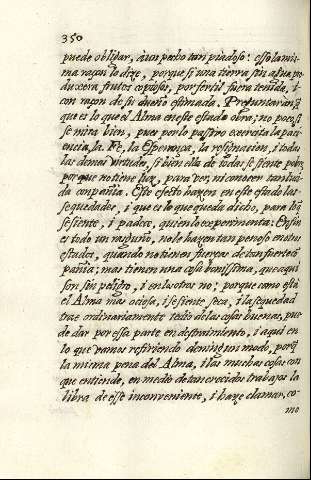 350
puede obligar, à un pecho tan piadoso: esso la mis
ma raçon lo dize, porque si una tierra sin agua pro
duxera frutos copiosos, por fertil fuera tenida, i
con raçon de su dueño estimada. Preguntaràn,
que es lo que el Alma en este estado obra; no poco si
se mira bien, pues por lo passivo exercita la paci
encia, la Fe, la Esperança, la resignacion, i todas
las demas virtudes, si bien ella de todas se siente pobre
porque no tiene luz, para ver, ni conocer tan luci
da conpañia. Este efecto hazen en este estado las
sequedades, i que es lo que queda dicho, para
se siente, i padece, quien lo experimenta: En fin
es todo un rasguño, no le hazen tan penoso en otros
estados, quando no tienen fuerças de tan fuerte con
pañia; mas tienen una cosa bonissima, que aqui
son sin peligro, i en los otros no; porque como està
el Alma mas ociosa, i se siente, seca, i la sequedad
trae ordinariamente tedio de las cosas buenas, pue
de dar por essa parte en destraimiento, i aqui en
lo que vamos refiriendo de ningun modo, porq̃
la misma pena del Alma, i las muchas cosas con
que entiende, en medio de tan crecidos trabajos la
libra de este inconveniente, i haze clamar, co
mo